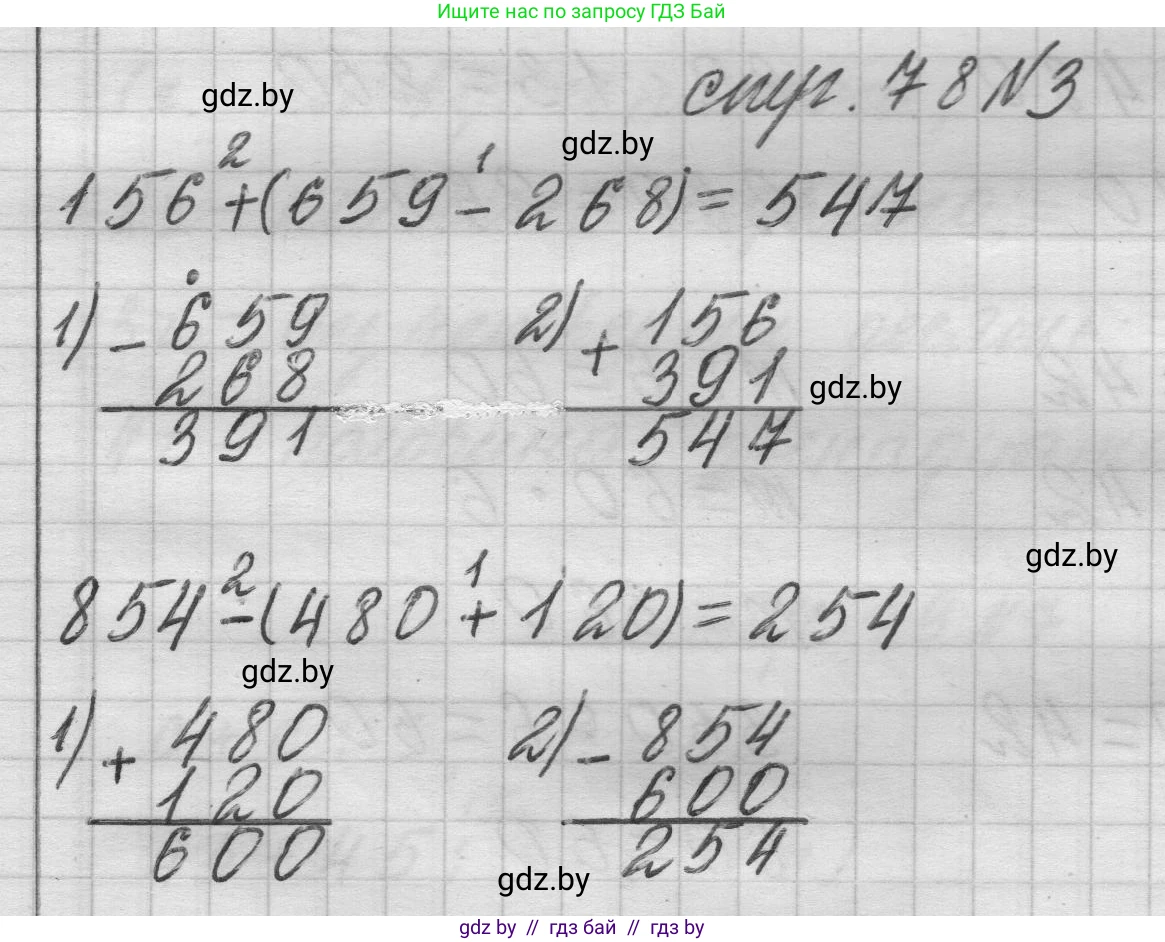 Ищите нас по запросу ГДЗ Бай
gdz.by
стр. 78 №3
gdz.by
2 1
156+(659-268)=547
1) - 659 2) + 156
268 391
gdz.by
391 547
gdz.by
2 1
854-(480+120)=254
gdz.by
1) + 480 2) - 854
120 600
600 254
gdz.by
gdz by // гдз бай // гдз by